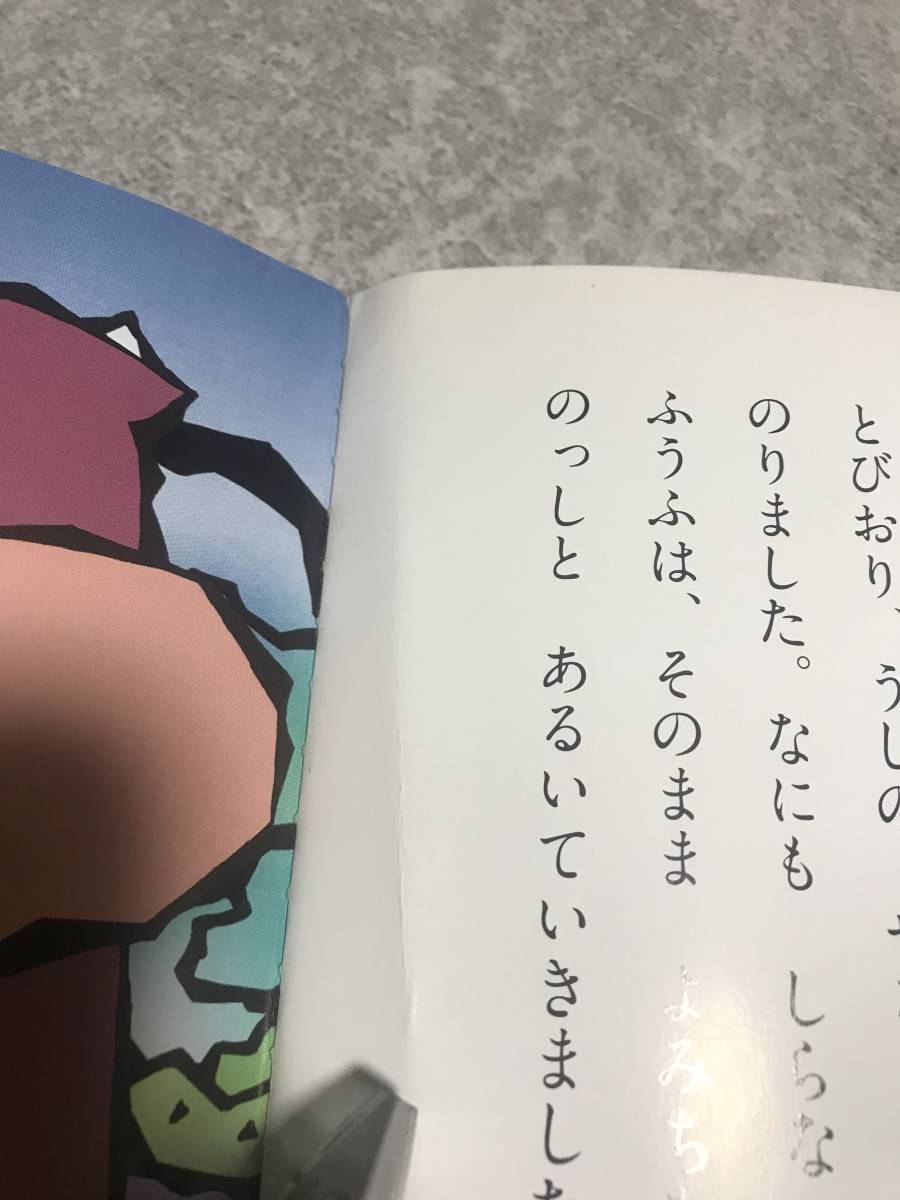 とびおり、うしの
のりました。なにも しらな
ふうふは、そのまま よみち
のっしと あるいていきまし